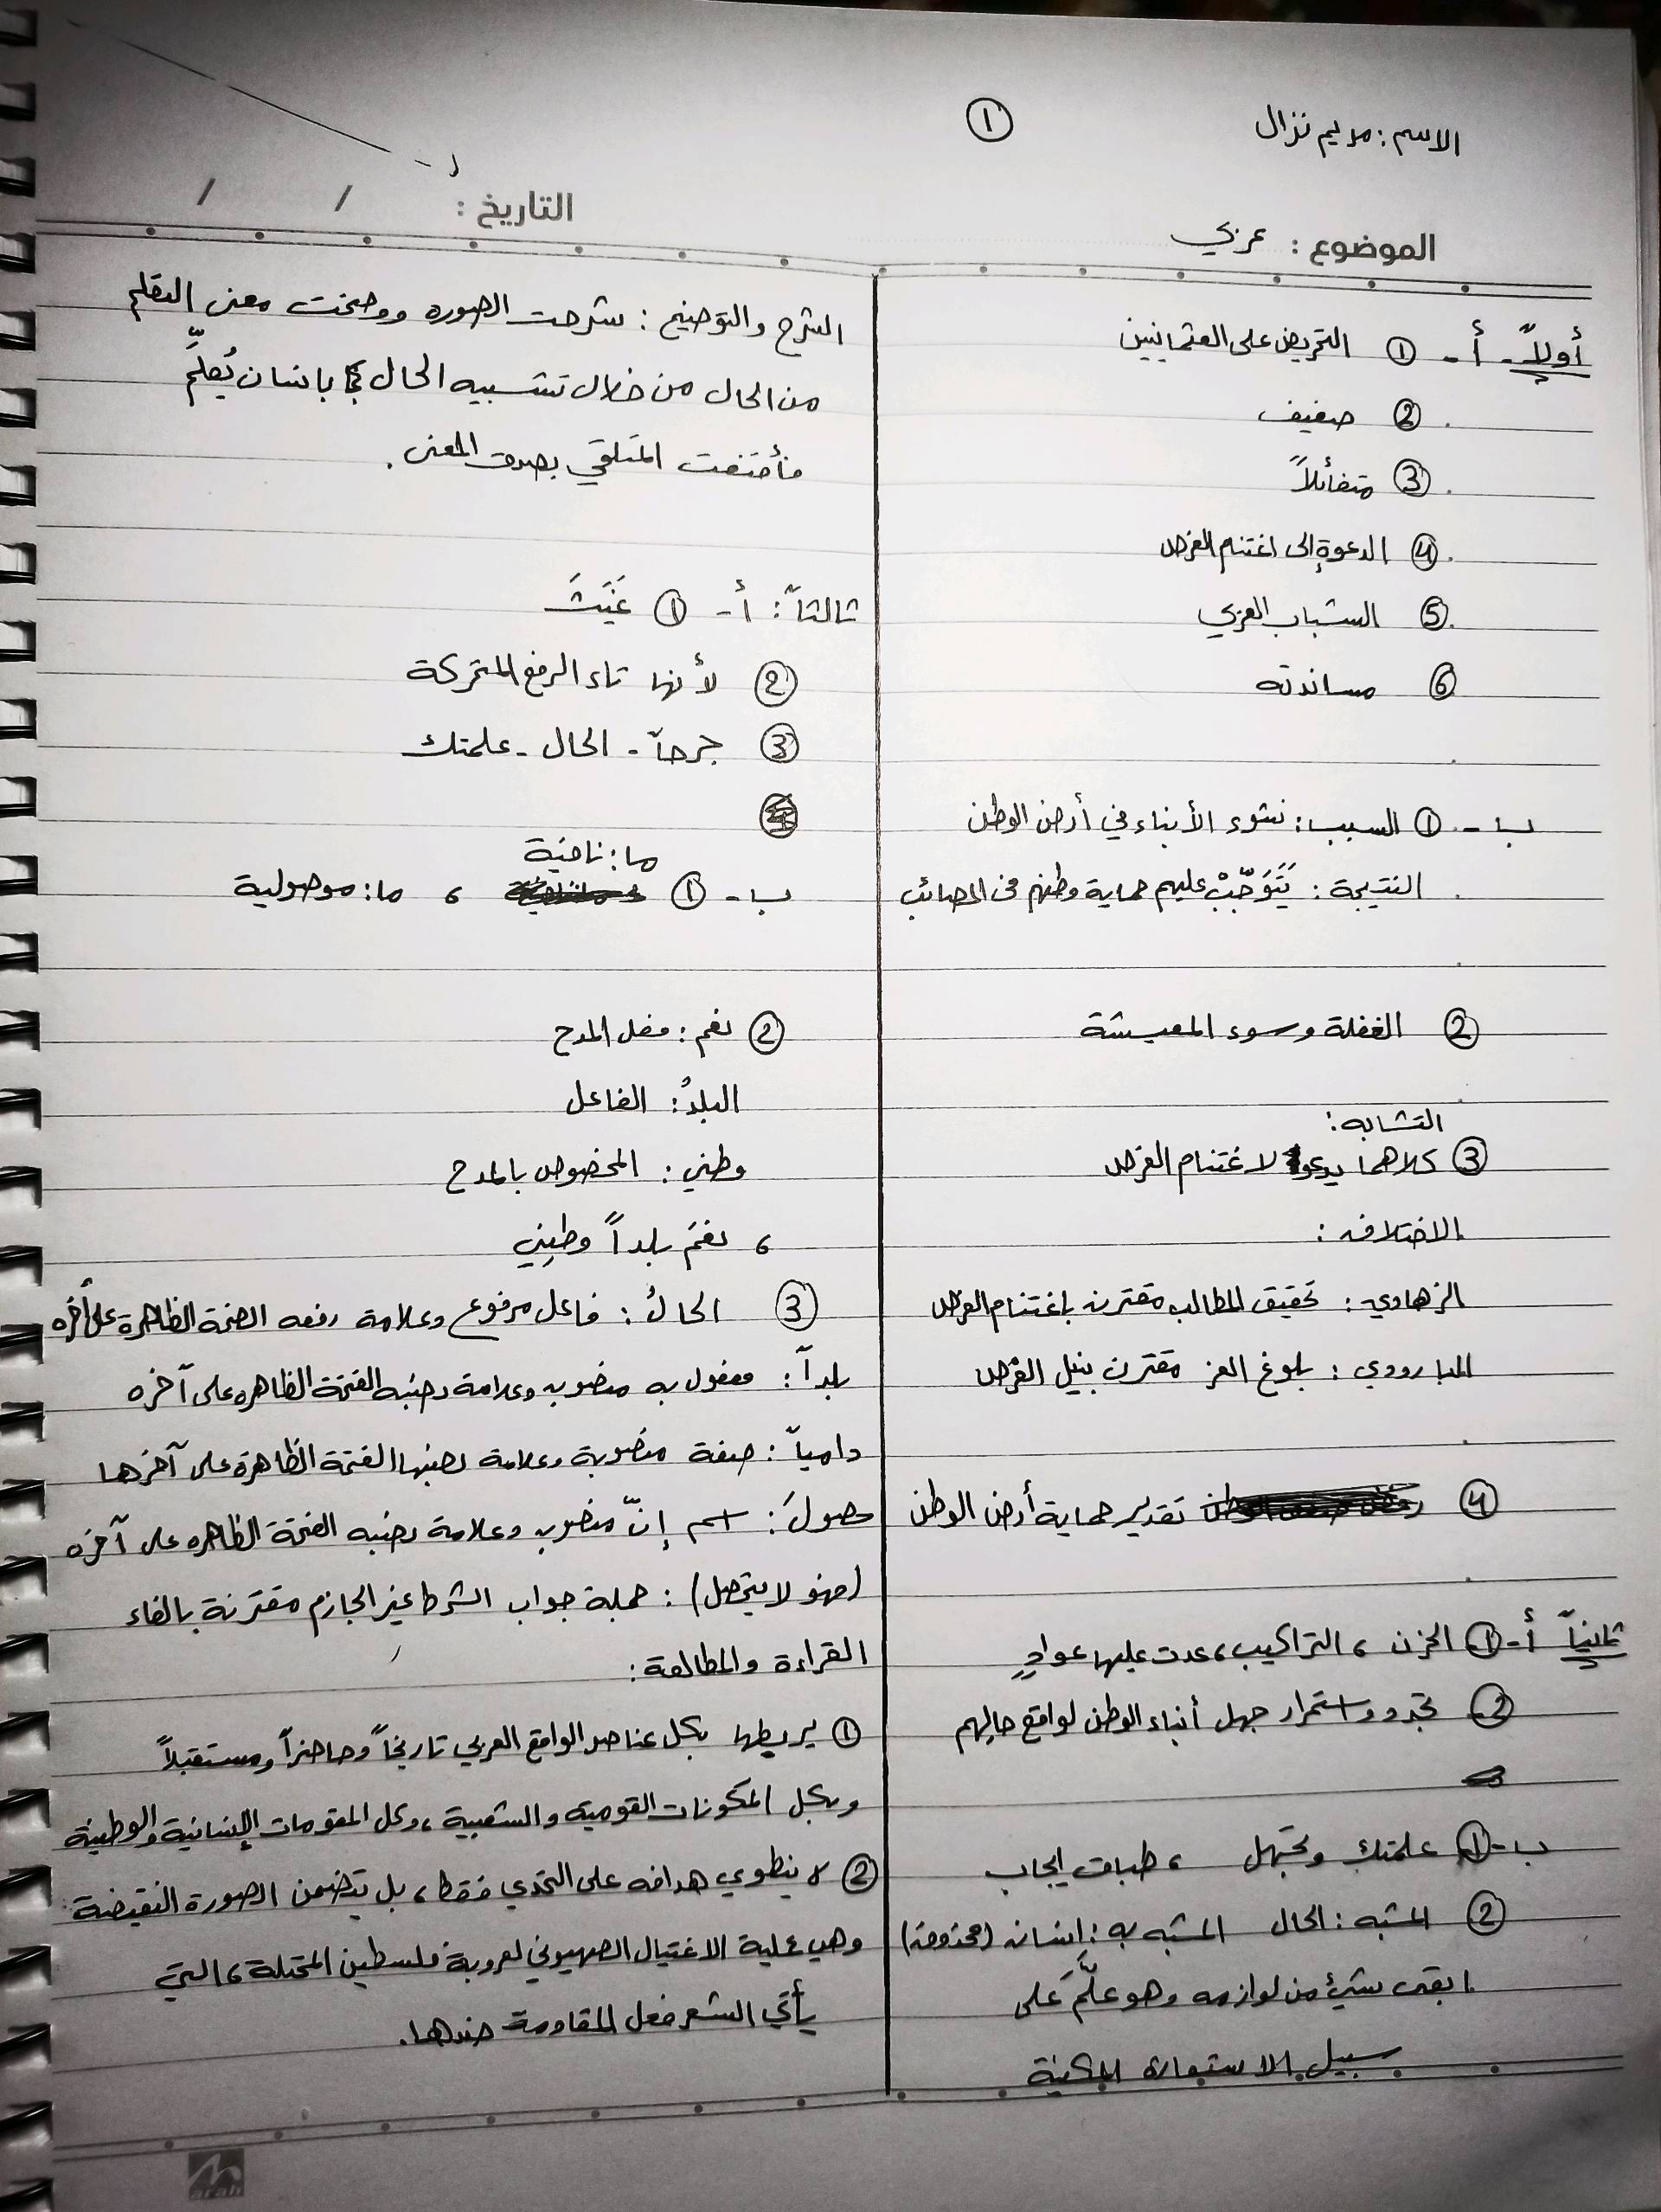 الاسم: مريم نزال
①
الموضوع: عربي
التاريخ: / /
أولاً - أ - ① التحريض على العثمانيين
② ضعيف
③ متفائلاً
④ الدعوة إلى اغتنام الفرص
⑤ الشباب العربي
⑥ مساندته
ب - ① السبب: نشوء الأبناء في أرض الوطن
النتيجة: يَتَوَجَّبْ عليهم حماية وطنهم من المصائب
② الغفلة وسوء المعيشة
التشابه:
③ كلاهما يدعو لاغتنام الفرص
الاختلاف:
الزهاوي: تحقيق المطالب مقترن باغتنام الفرص
البارودي: بلوغ العز مقترن بنيل الفرص
④ تقدير حماية أرض الوطن
ثانياً أ - ① الحزن، التراكيب، عدت عليها عوادٍ
② تجدد واستمرار جهل أبناء الوطن لواقع حالهم
ب - ① علمتك وتجهل، طباق إيجاب
② المشبه: الحال المشبه به: إنسان (محذوف)
ابقى شيئ من لوازمه وهو علَّمَ على
سبيل الاستعارة المكنية
الشرح والتوضيح: شرحت الصوره ووضحت معنى التعلم
من الحال من خلال تشبيه الحال بإنسان يُعلِّم
فأقنعت المتلقي بصدق المعنى.
ثالثاً: أ - ① عَيَّثَ
② لأنها تاء الرفع المتحركة
③ جرحاً - الحال - علمتك
ما: نافية
ب - ① ، ما: موصولية
② نعم: فعل المدح
البلدُ: الفاعل
وطني: المخصوص بالمدح
، نعمَ بلداً وطني
③ الحالُ: فاعل مرفوع وعلامة رفعه الضمة الظاهرة على آخره
بلداً: مفعول به منصوب وعلامة نصبه الفتحة الظاهره على آخره
دامياً: صفة منصوبة وعلامة نصبها الفتحة الظاهرة على آخرها
حصولَ: اسم إنّ منصوب وعلامة نصبه الفتحة الظاهره على آخره
(فهو لا يتحصل): جملة جواب الشرط غير الجازم مقترنة بالفاء
القراءة والمطالعة:
① يربطها بكل عناصر الواقع العربي تاريخاً وحاضراً ومستقبلاً
وبكل المكونات القومية والشعبية، وكل المقومات الإنسانية والوطنية
② لا ينطوي هدافه على التحدي فقط، بل يتضمن الصورة النقيضة
وهي عملية الاغتيال الصهيوني لعروبة فلسطين المحتلة، التي
يأتي الشعر فعل المقاومة ضدها.